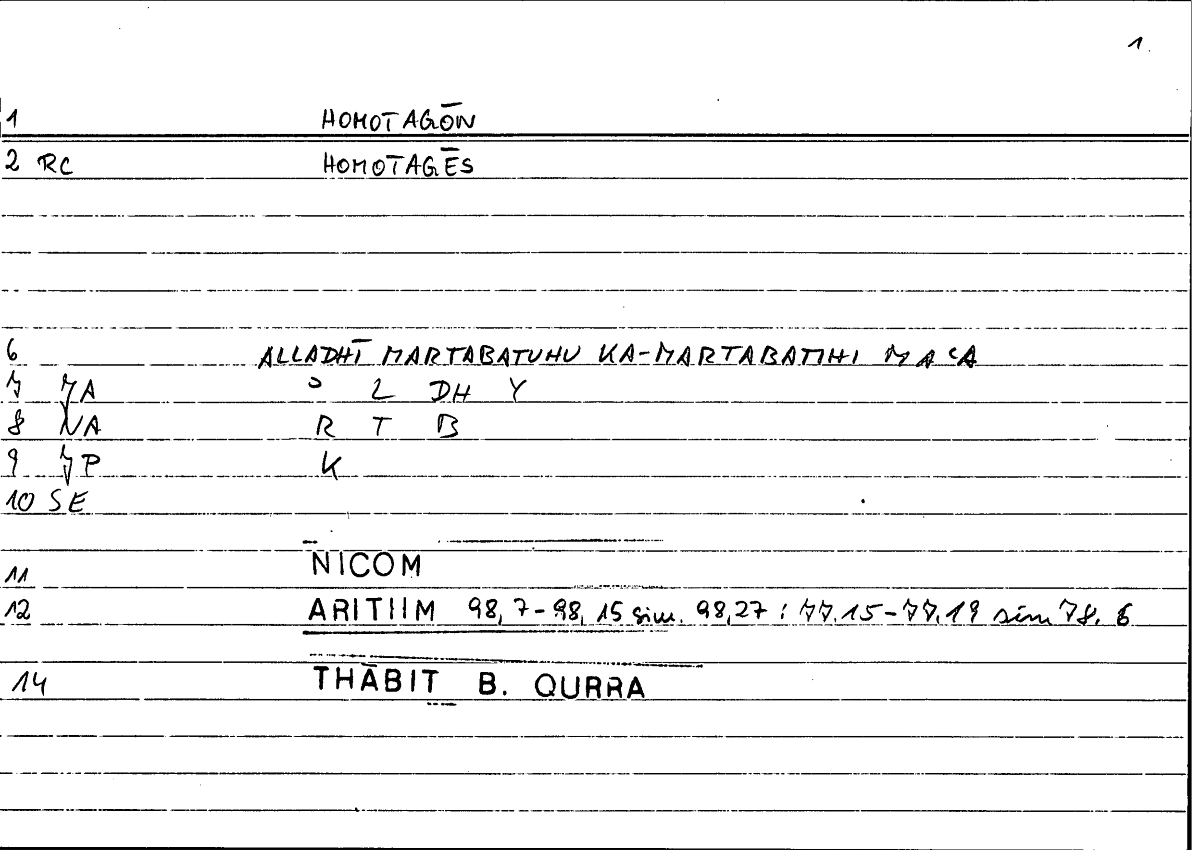 1.
1 HOMOTAGŌN
2 RC HOMOTAGĒS
6 ALLADHĪ MARTABATUHU KA-MARTABATIHI MAʿA
7 7A ʾ L DH Y
8 NA R T B
9 7P K
10 SE
11 NICOM
12 ARITIIM 98,7-98,15 sim. 98,27 : 77.15-77.19 sim 78.6
14 THĀBIT B. QURRA